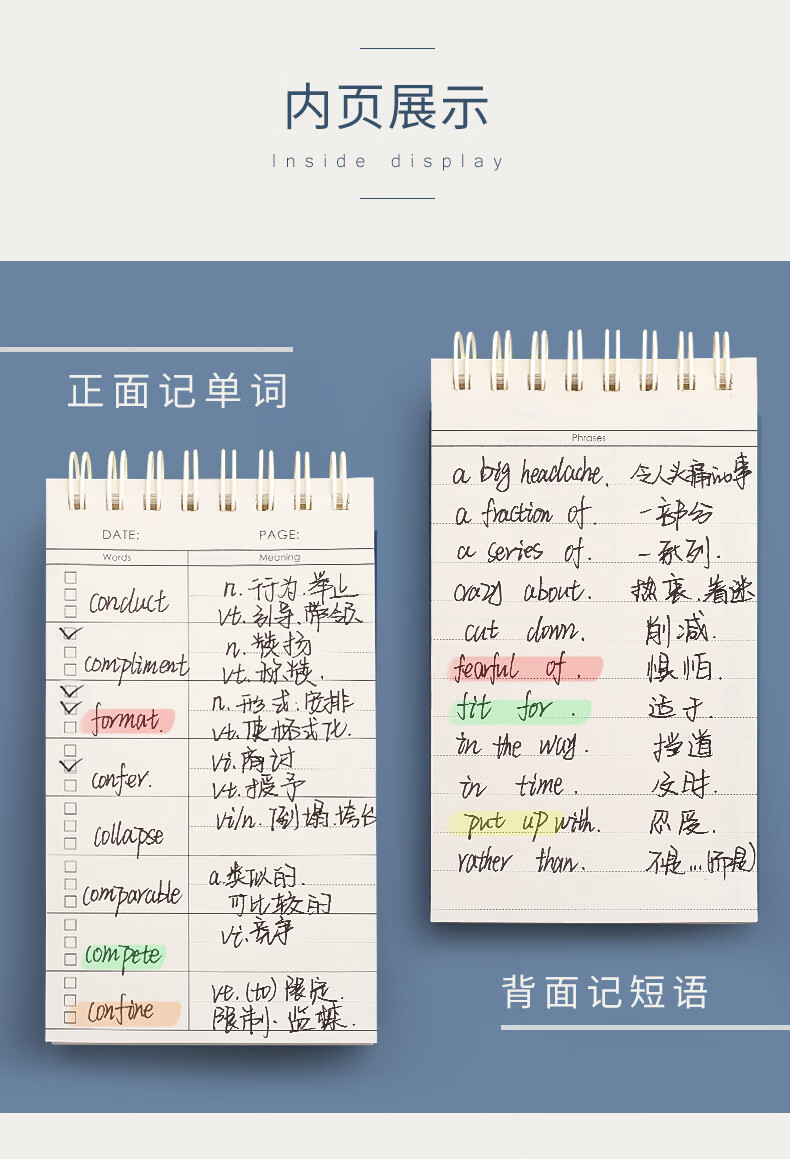 内页展示
Inside display
正面记单词
DATE: PAGE:
Words Meaning
conduct n. 行为.举止
vt. 引导.带领
compliment n. 赞扬
vt. 称赞.
format. n. 形式.安排
vt. 使格式化.
confer. vi. 商讨
vt. 授予
collapse vi/n. 倒塌.垮台
comparable a.类似的.
可比较的
compete vi. 竞争
confine vt. (to) 限定.
限制.监禁.
Phrases
a big headache. 令人头痛的事
a fraction of. 一部分
a series of. 一系列.
crazy about. 热衷.着迷
cut down. 削减.
fearful of. 惧怕.
fit for. 适于.
in the way. 挡道
in time. 及时.
put up with. 忍受.
rather than. 不是...(而是)
背面记短语